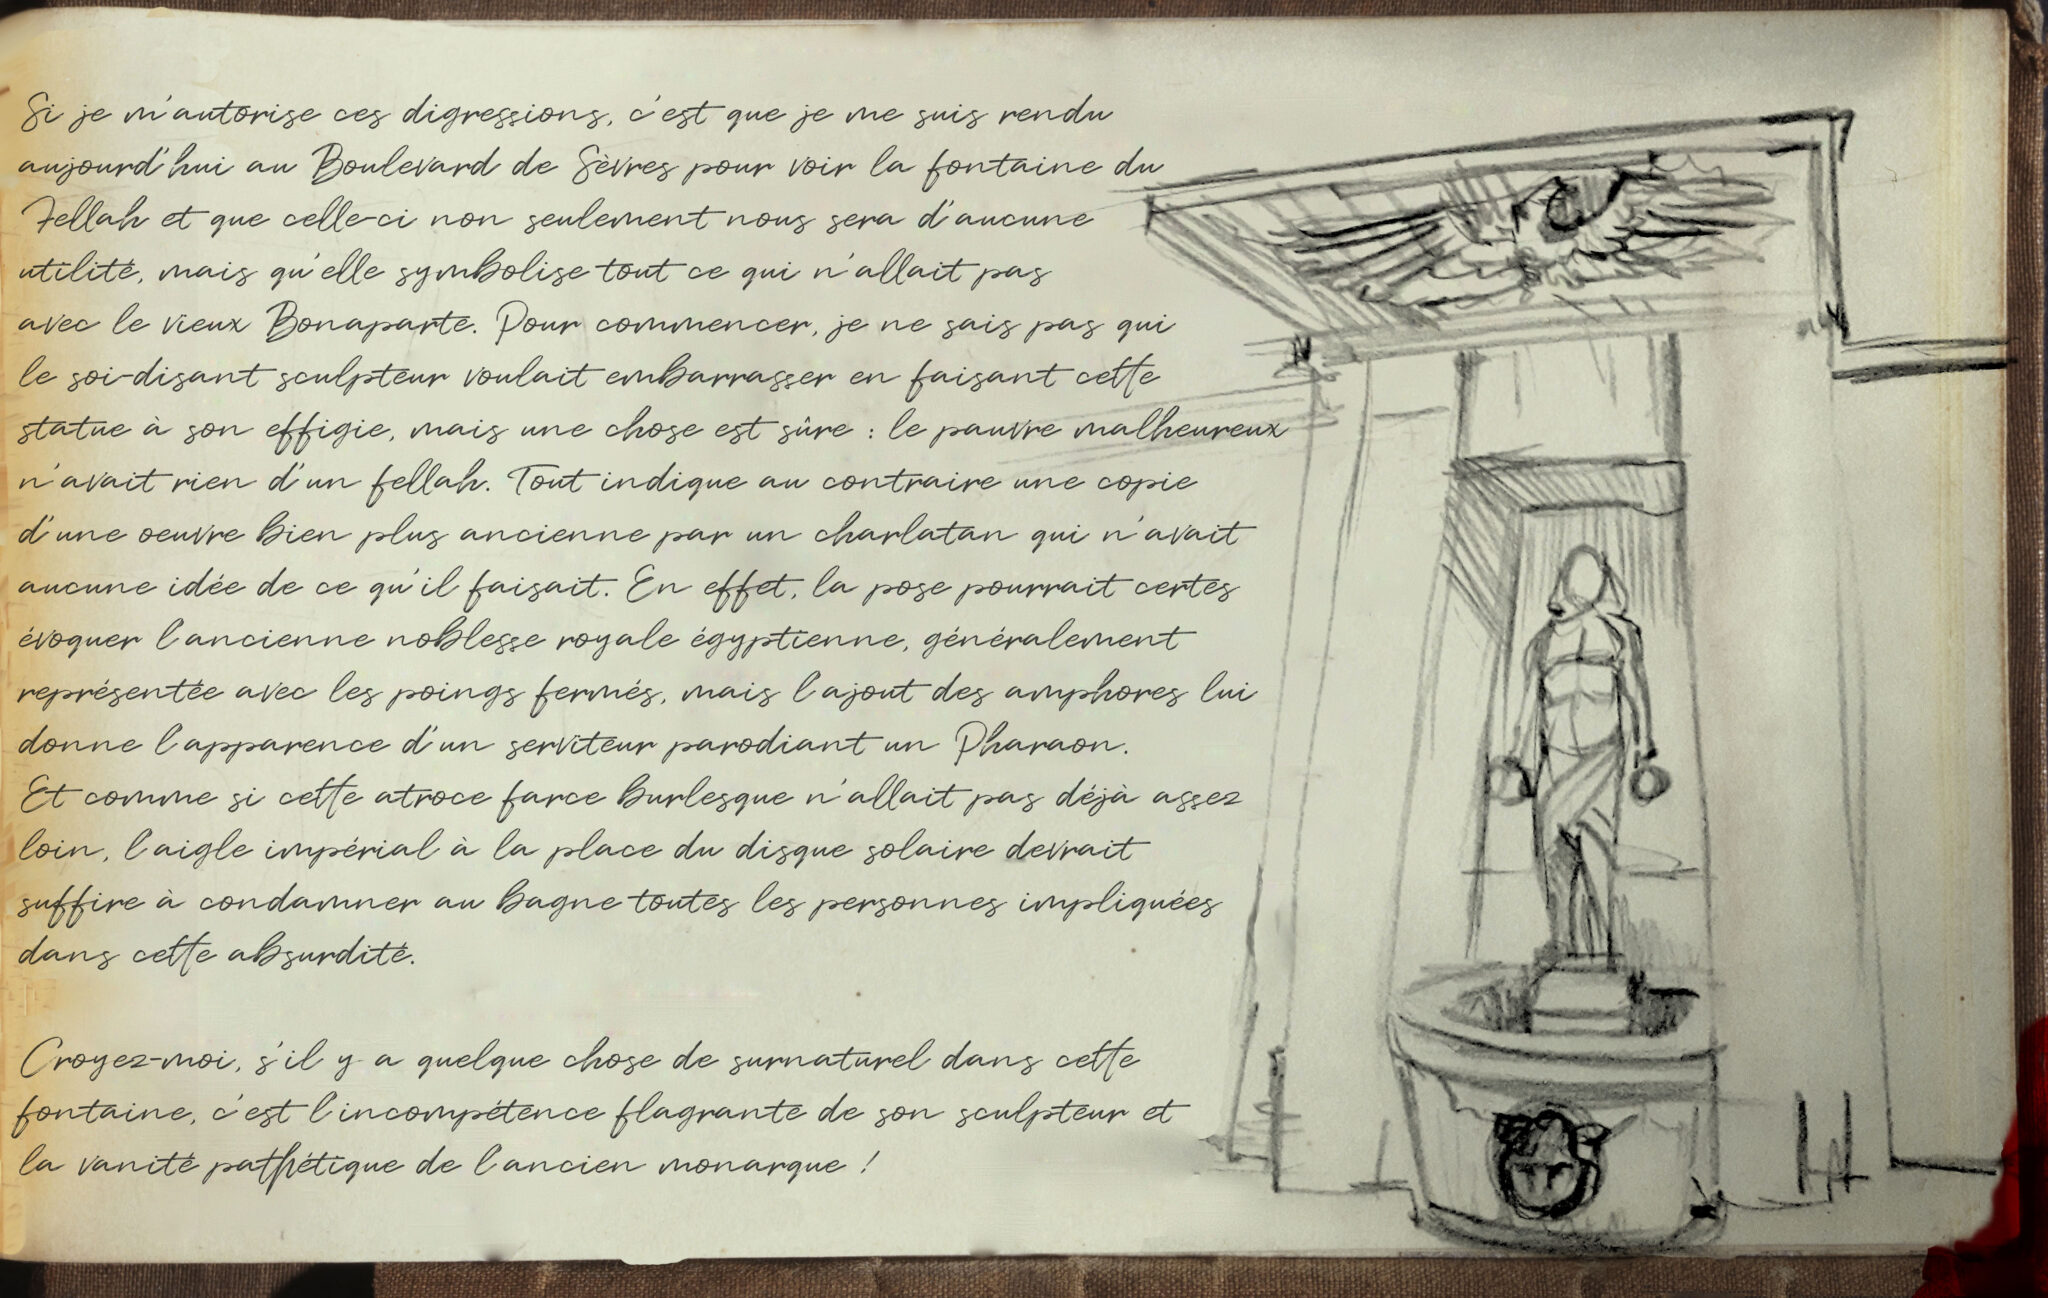 Si je m'autorise ces digressions, c'est que je me suis rendu
aujourd'hui au Boulevard de Sèvres pour voir la fontaine du
Fellah et que celle-ci non seulement nous sera d'aucune
utilité, mais qu'elle symbolise tout ce qui n'allait pas
avec le vieux Bonaparte. Pour commencer, je ne sais pas qui
le soi-disant sculpteur voulait embarrasser en faisant cette
statue à son effigie, mais une chose est sûre : le pauvre malheureux
n'avait rien d'un fellah. Tout indique au contraire une copie
d'une oeuvre bien plus ancienne par un charlatan qui n'avait
aucune idée de ce qu'il faisait. En effet, la pose pourrait certes
évoquer l'ancienne noblesse royale égyptienne, généralement
représentée avec les poings fermés, mais l'ajout des amphores lui
donne l'apparence d'un serviteur parodiant un Pharaon.
Et comme si cette atroce farce burlesque n'allait pas déjà assez
loin, l'aigle impérial à la place du disque solaire devrait
suffire à condamner au bagne toutes les personnes impliquées
dans cette absurdité.
Croyez-moi, s'il y a quelque chose de surnaturel dans cette
fontaine, c'est l'incompétence flagrante de son sculpteur et
la vanité pathétique de l'ancien monarque !